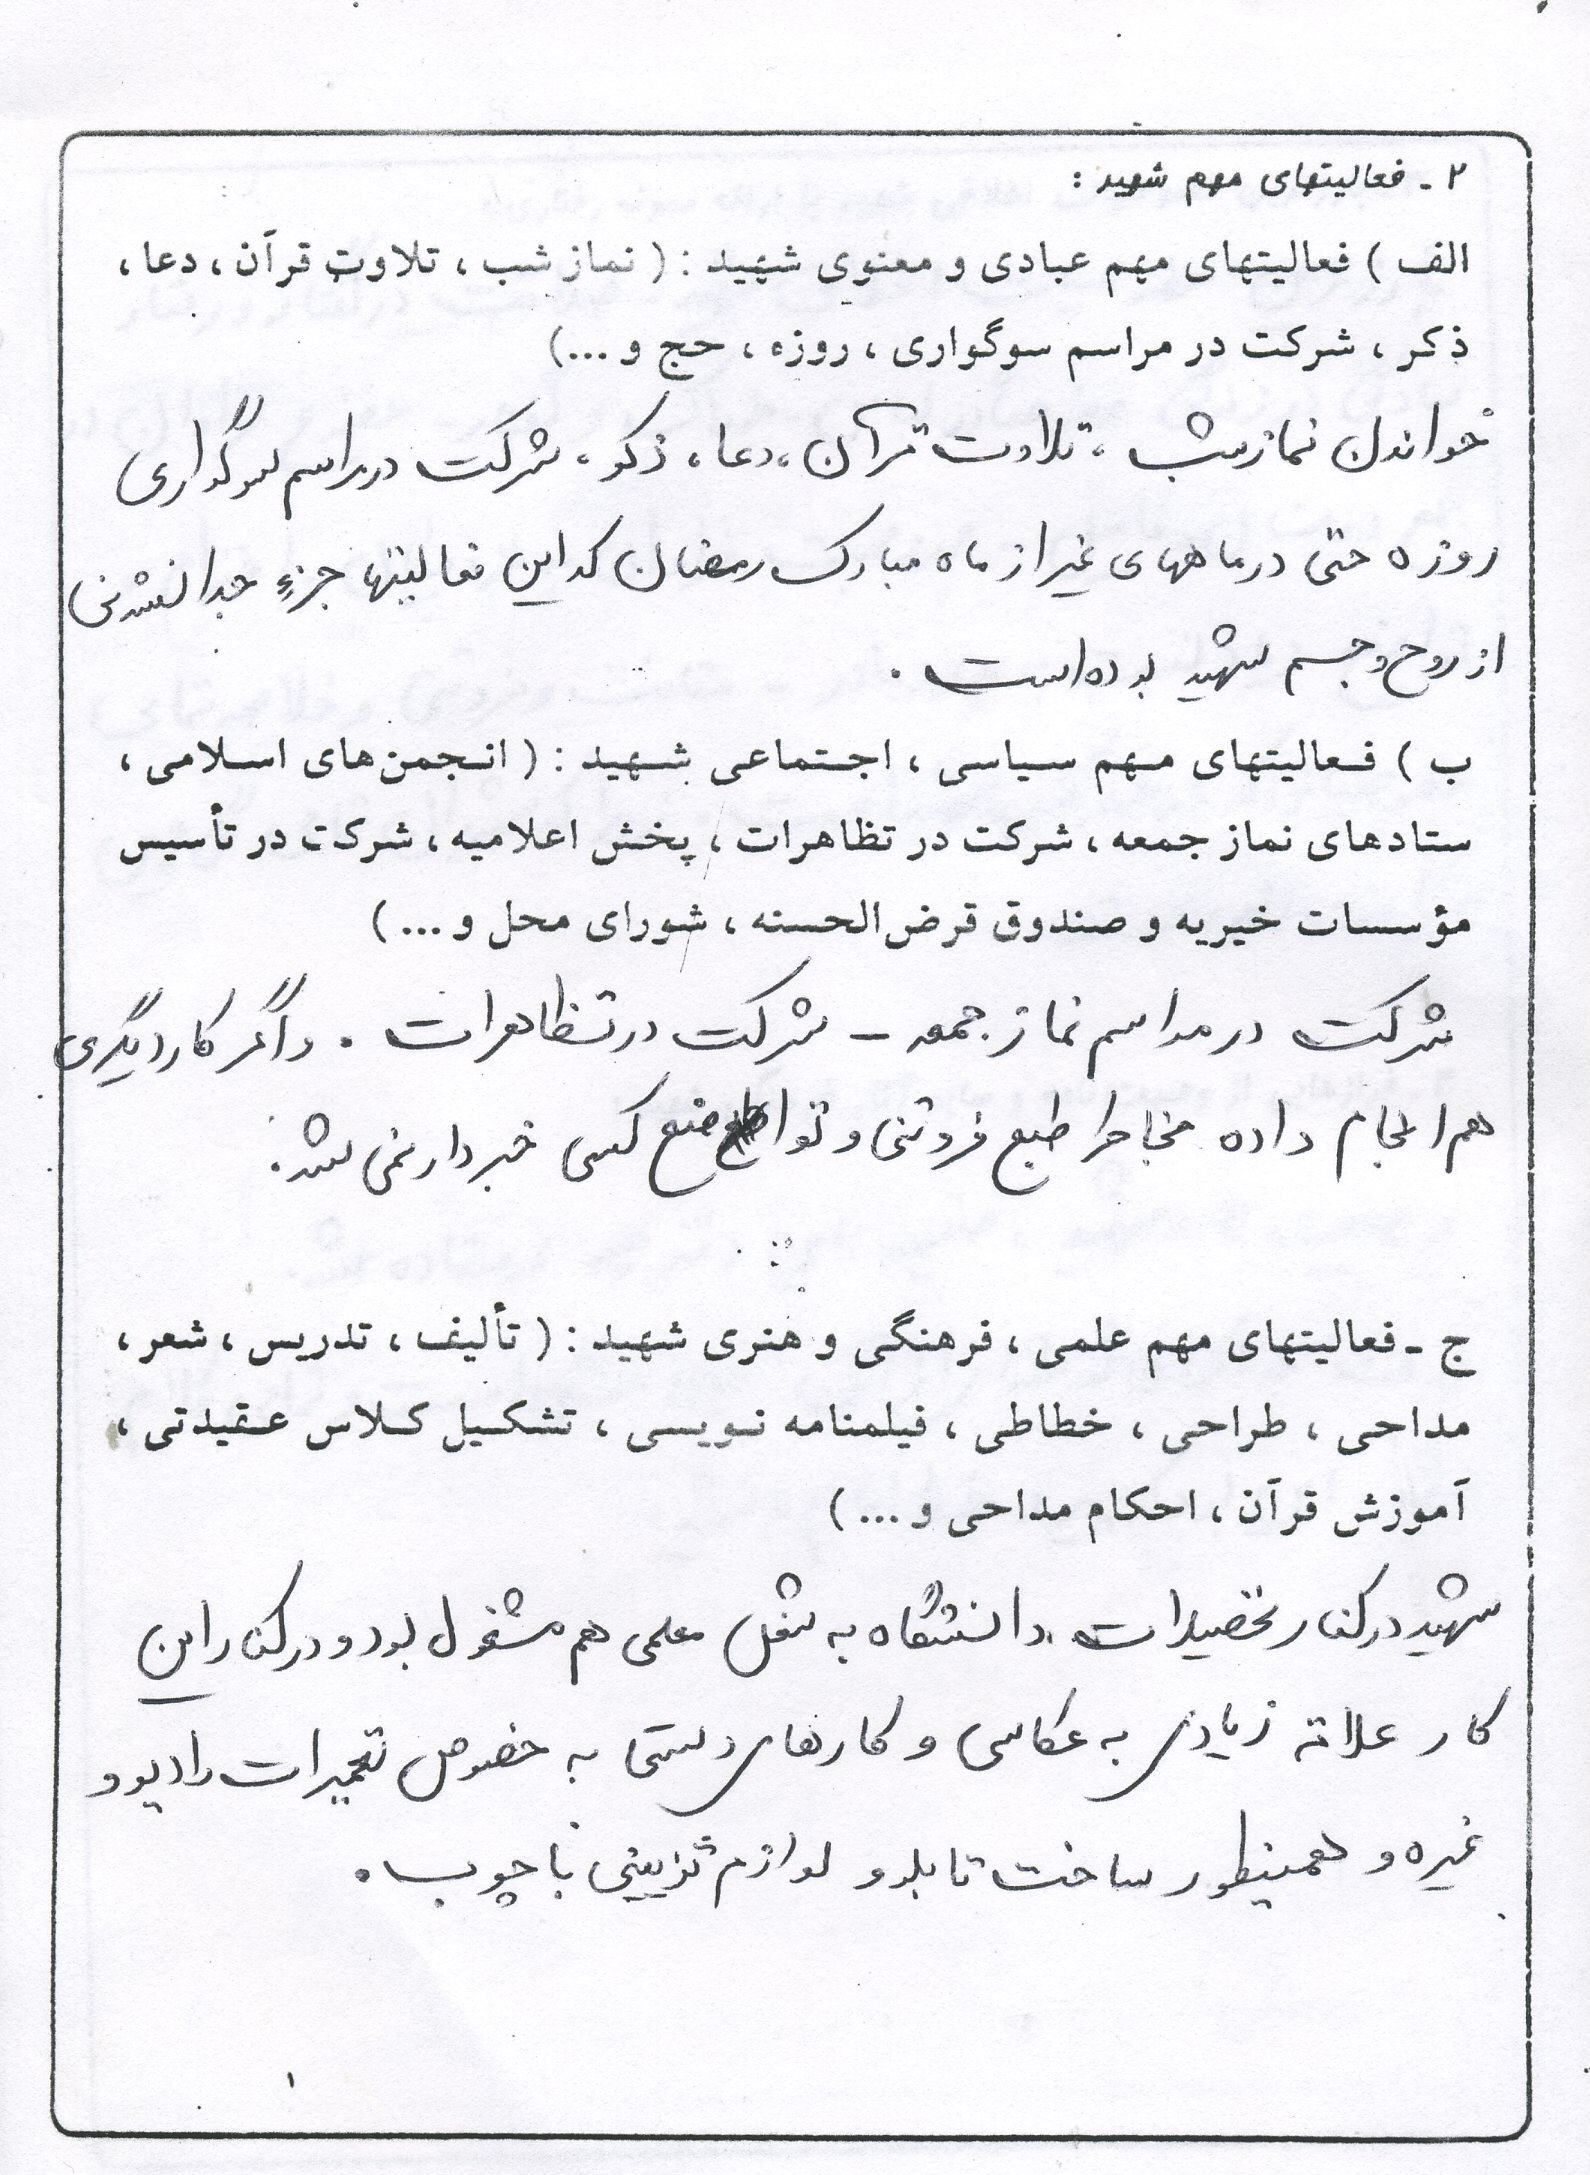 ۲ ـ فعالیتهای مهم شهید :
الف ) فعالیتهای مهم عبادی و معنوی شهید : ( نماز شب ، تلاوت قرآن ، دعا ،
ذکر ، شرکت در مراسم سوگواری ، روزه ، حج و ...)
خواندن نماز شب ، تلاوت قرآن ، دعا ، ذکر ، شرکت در مراسم سوگواری
روزه حتی در ماههای غیر از ماه مبارک رمضان که این فعالیتها جزءِ جدا نشدنی
از روح و جسم شهید بوده است .
ب ) فعالیتهای مهم سیاسی ، اجتماعی شهید : ( انجمن‌های اسلامی ،
ستادهای نماز جمعه ، شرکت در تظاهرات ، پخش اعلامیه ، شرکت در تأسیس
مؤسسات خیریه و صندوق قرض‌الحسنه ، شورای محل و ... )
شرکت در مراسم نماز جمعه – شرکت در تظاهرات . و اگر کار دیگری
هم انجام داده بخاطر طبع فروتنی و تواضع کسی خبردار نمی شد .
ج ـ فعالیتهای مهم علمی ، فرهنگی و هنری شهید : ( تألیف ، تدریس ، شعر ،
مداحی ، طراحی ، خطاطی ، فیلمنامه نویسی ، تشکیل کلاس عقیدتی ،
آموزش قرآن ، احکام مداحی و ... )
شهید در کنار تحصیلات دانشگاه به شغل معلمی هم مشغول بود و در کنار این
کار علاقه زیادی به عکاسی و کارهای دستی به خصوص تعمیرات رادیو و
غیره و همینطور ساخت تابلو و لوازم تزیینی با چوب .
۱